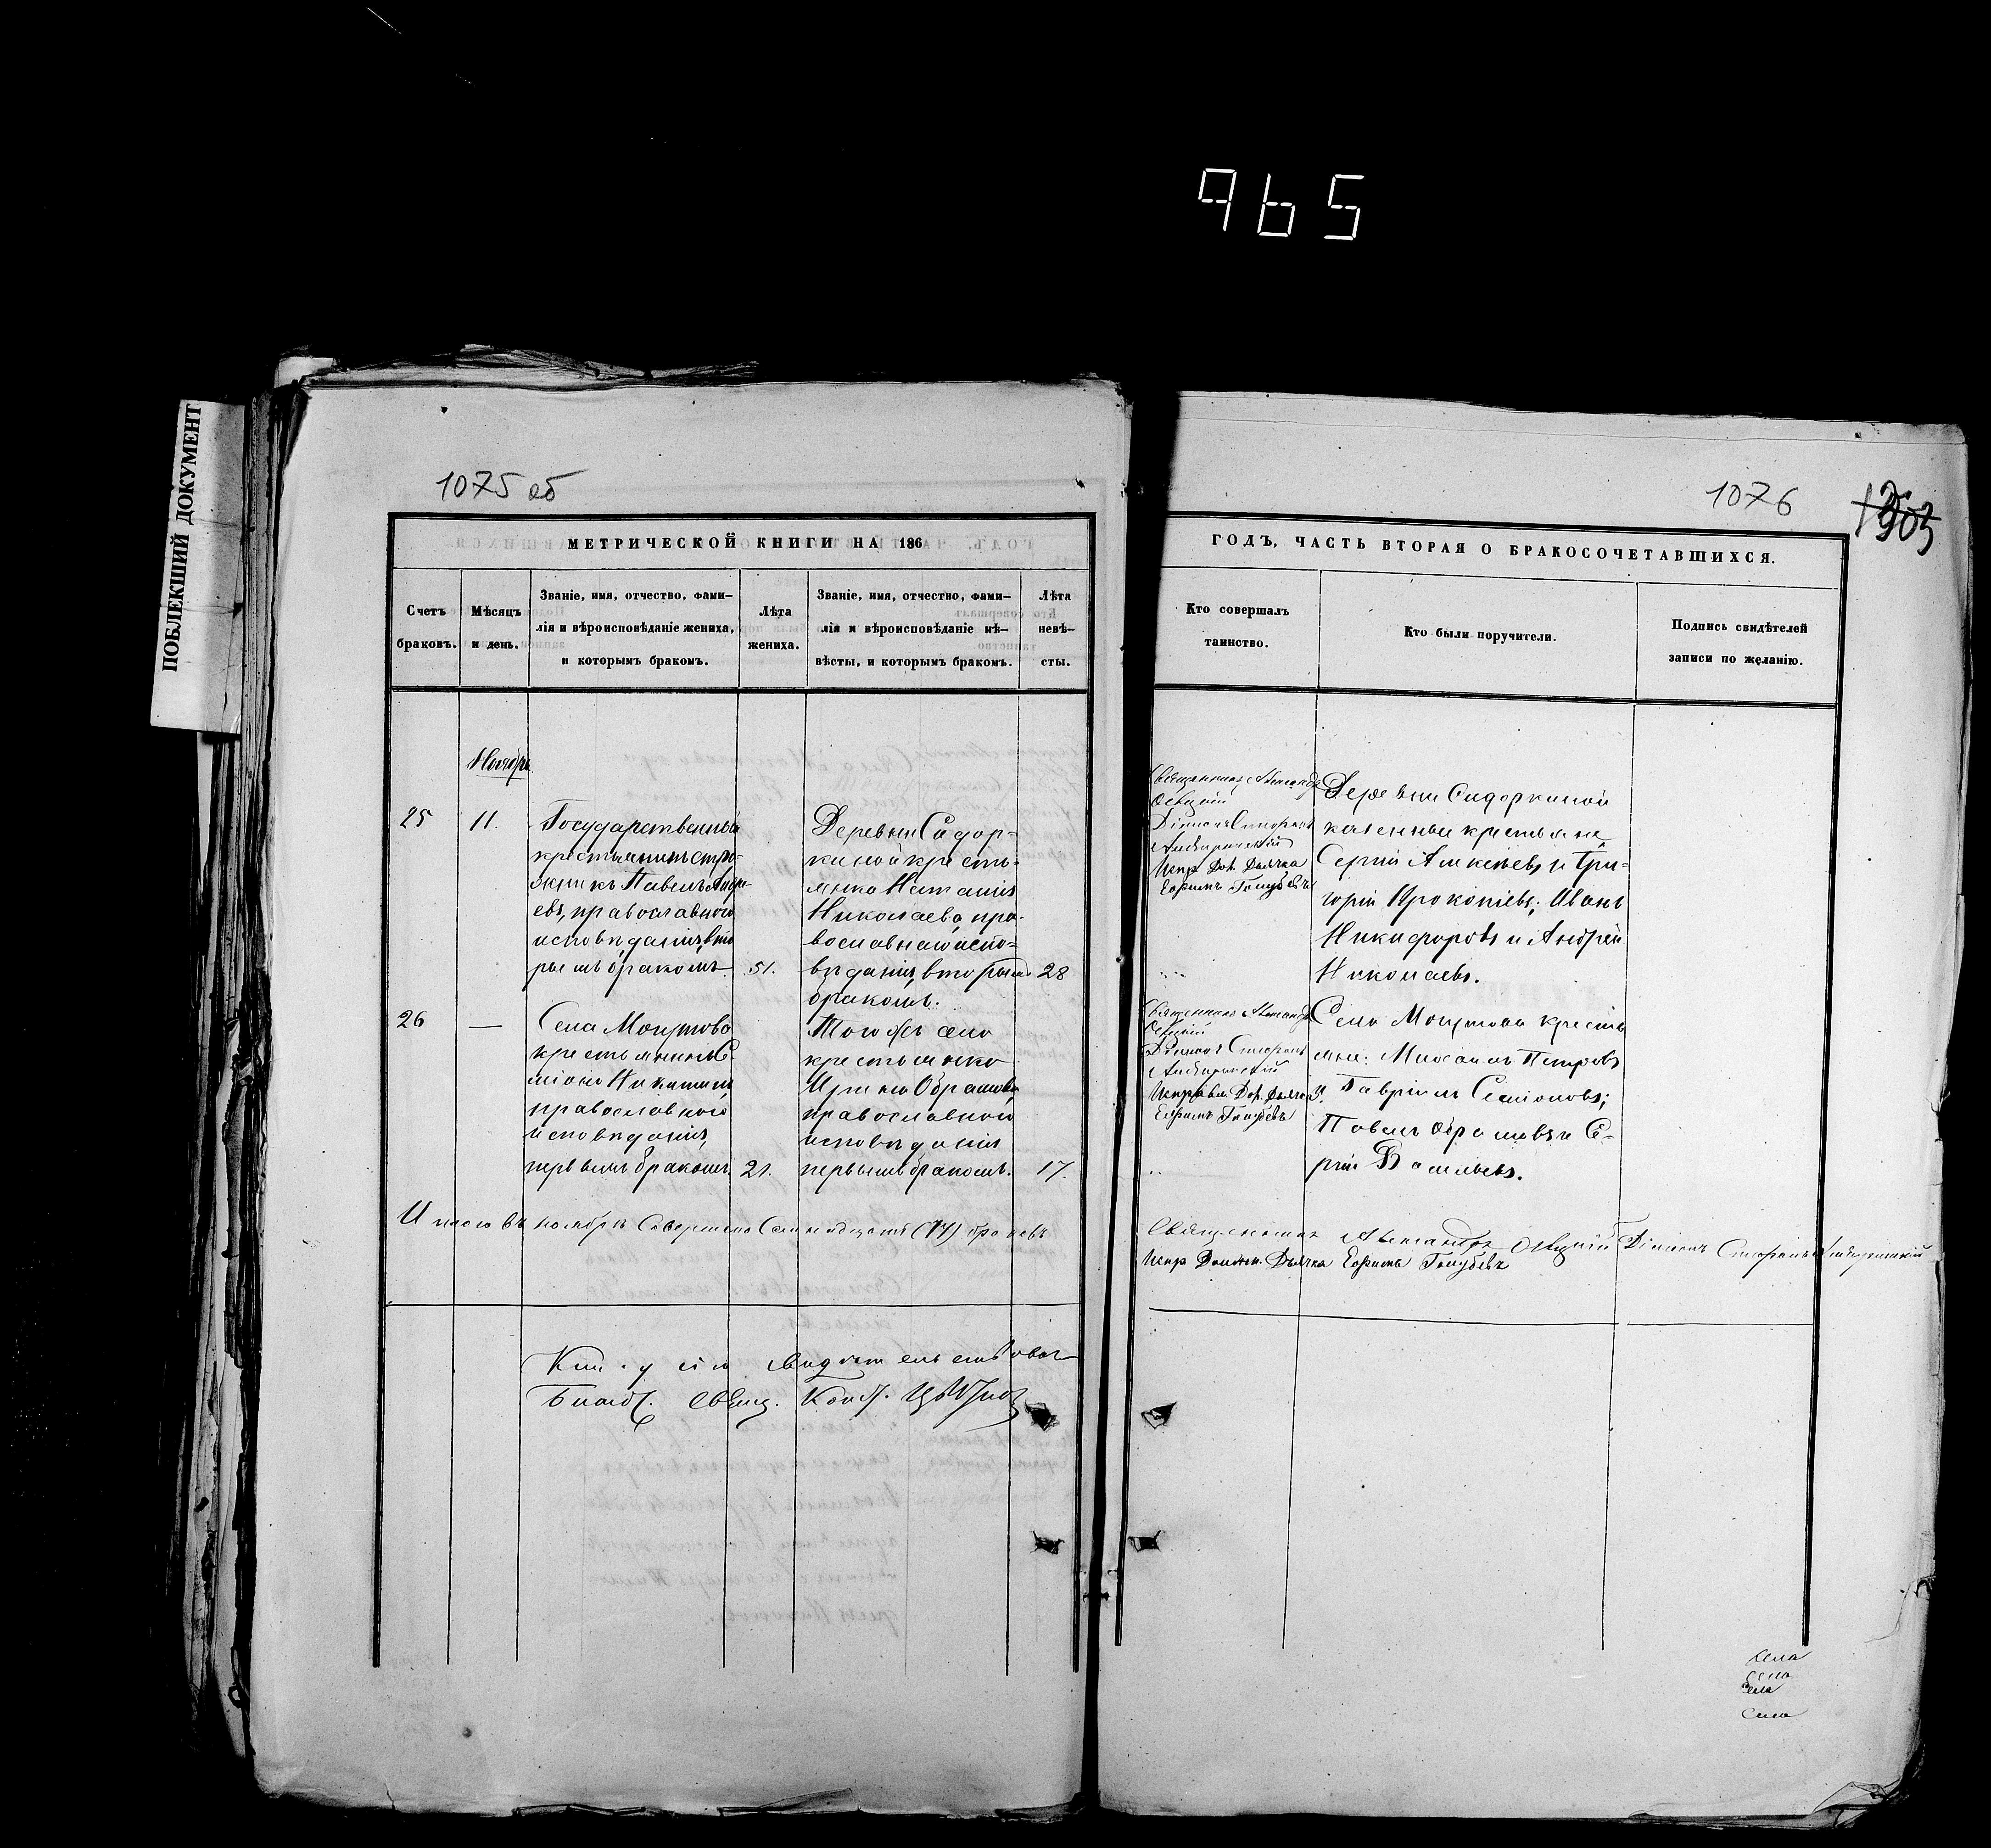 965
ПОБЛЕКШИЙ ДОКУМЕНТ
1075 об
МЕТРИЧЕСКОЙ КНИГИ НА 186
Счетъ браковъ.
Мѣсяцъ и день.
Званіе, имя, отчество, фами-
лія и вѣроисповѣданіе жениха,
и которымъ бракомъ.
Лѣта жениха.
Званіе, имя, отчество, фами-
лія и вѣроисповѣданіе не-
вѣсты, и которымъ бракомъ.
Лѣта невѣ-
сты.
Ноябрь
25
11.
Государственный
крестьянинъ
Павелъ Андре-
евъ, православнаго
исповѣданія, вто
рымъ бракомъ
51.
Деревни Сидор-
киной кресть-
янка Наталія
Николаева, пра-
вославнаго испо-
вѣданія, вторымъ
бракомъ.
28
26
—
Села Мокшова
крестьянинъ Се-
міонъ Никитинъ
православнаго
исповѣданія,
первымъ бракомъ
21.
Того жъ села
крестьянка
Ирина
православнаго
исповѣданія
первымъ бракомъ.
17.
Итого въ ноябрѣ Совершено (14) браковъ
Книгу сію свидѣтельствовалъ
Благ. Свящ.
1076
903
ГОДЪ, ЧАСТЬ ВТОРАЯ О БРАКОСОЧЕТАВШИХСЯ.
Кто совершалъ
таинство.
Кто были поручители.
Подпись свидѣтелей
записи по желанію.
Священникъ Александръ
Діаконъ
Испр Дол. Дьячка
Ефимъ Голубевъ
Деревни Сидоркиной
казенные крестьяне
Сергій и Гри-
горій Прокопіевъ; Иванъ
Никифоровъ и Андрей
Николаевъ.
Священникъ Александръ
Діаконъ
Исправл. Дол. Дьячка
Ефимъ Голубевъ
Села кресть
яне: Михаилъ Петровъ
и Гавріилъ Семіоновъ;
Павелъ и Се-
ргій Васильевъ.
Священникъ Александръ Діаконъ
Испр Должн. Дьячка Ефимъ Голубевъ
Села
Села
Села
Села